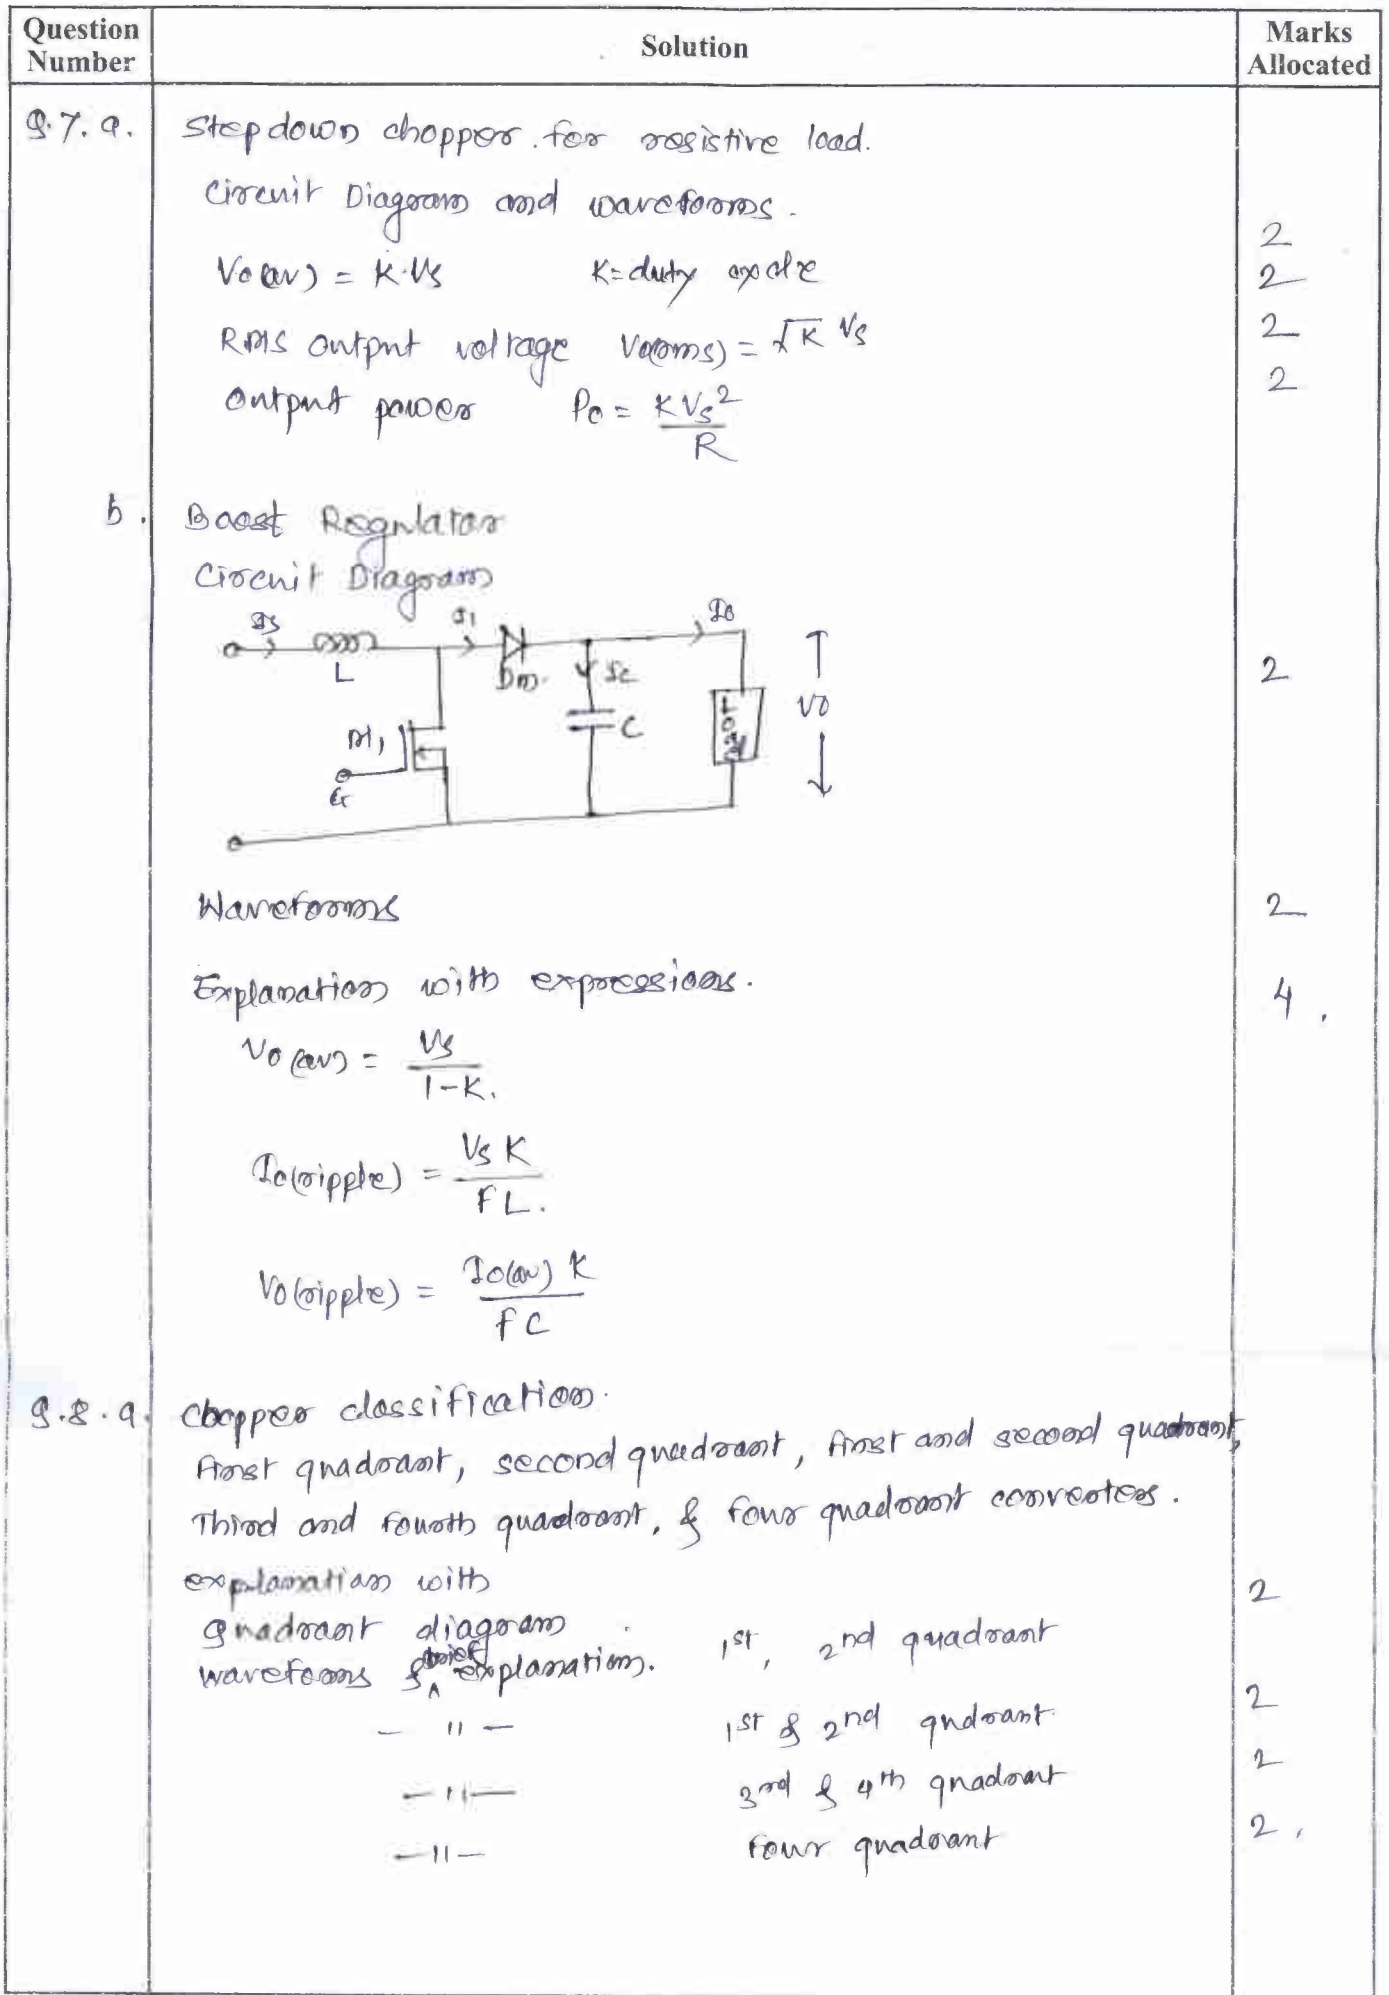 Question Number
Solution
Marks Allocated
Q.7. a. Stepdown chopper for resistive load.
Circuit Diagram and waveforms. 2
Vo(av) = K.Vs K = duty cycle 2
RMS output voltage Vo(rms) = √K Vs 2
Output power Po = KVs² / R 2
b. Boost Regulator
Circuit Diagram
Is I1 Io
L Dm. Ic
M1 C LOAD Vo 2
G
Waveforms 2
Explanation with expressions. 4.
Vo(av) = Vs / 1-K.
Ic(ripple) = Vs K / FL.
Vo(ripple) = Io(av) K / fC
Q.8.a. Chopper classification.
First quadrant, second quadrant, first and second quadrant,
Third and Fourth quadrant, & four quadrant converters.
explanation with 2
quadrant diagram
waveforms & brief explanation. 1st, 2nd quadrant
— 11 — 1st & 2nd qudrant. 2
— 11 — 3rd & 4th quadrant 2
— 11 — Four quadrant 2.